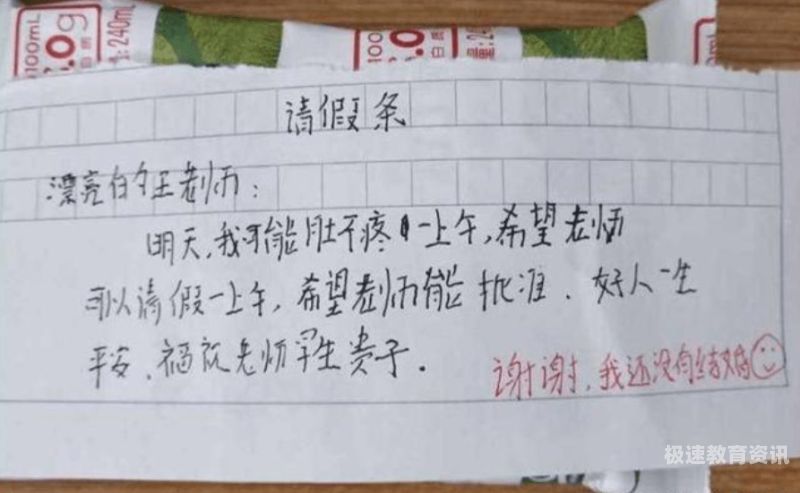 100mL
.0g
白质
量:240mL
100
.0
白质
量:24
mL
请假条
漂亮的王老师:
明天,我可能肚子疼一上午,希望老师
可以请假一上午,希望老师能批准.好人一生
平安、祝福老师早生贵子.
谢谢,我还没有结婚
极速教育资讯